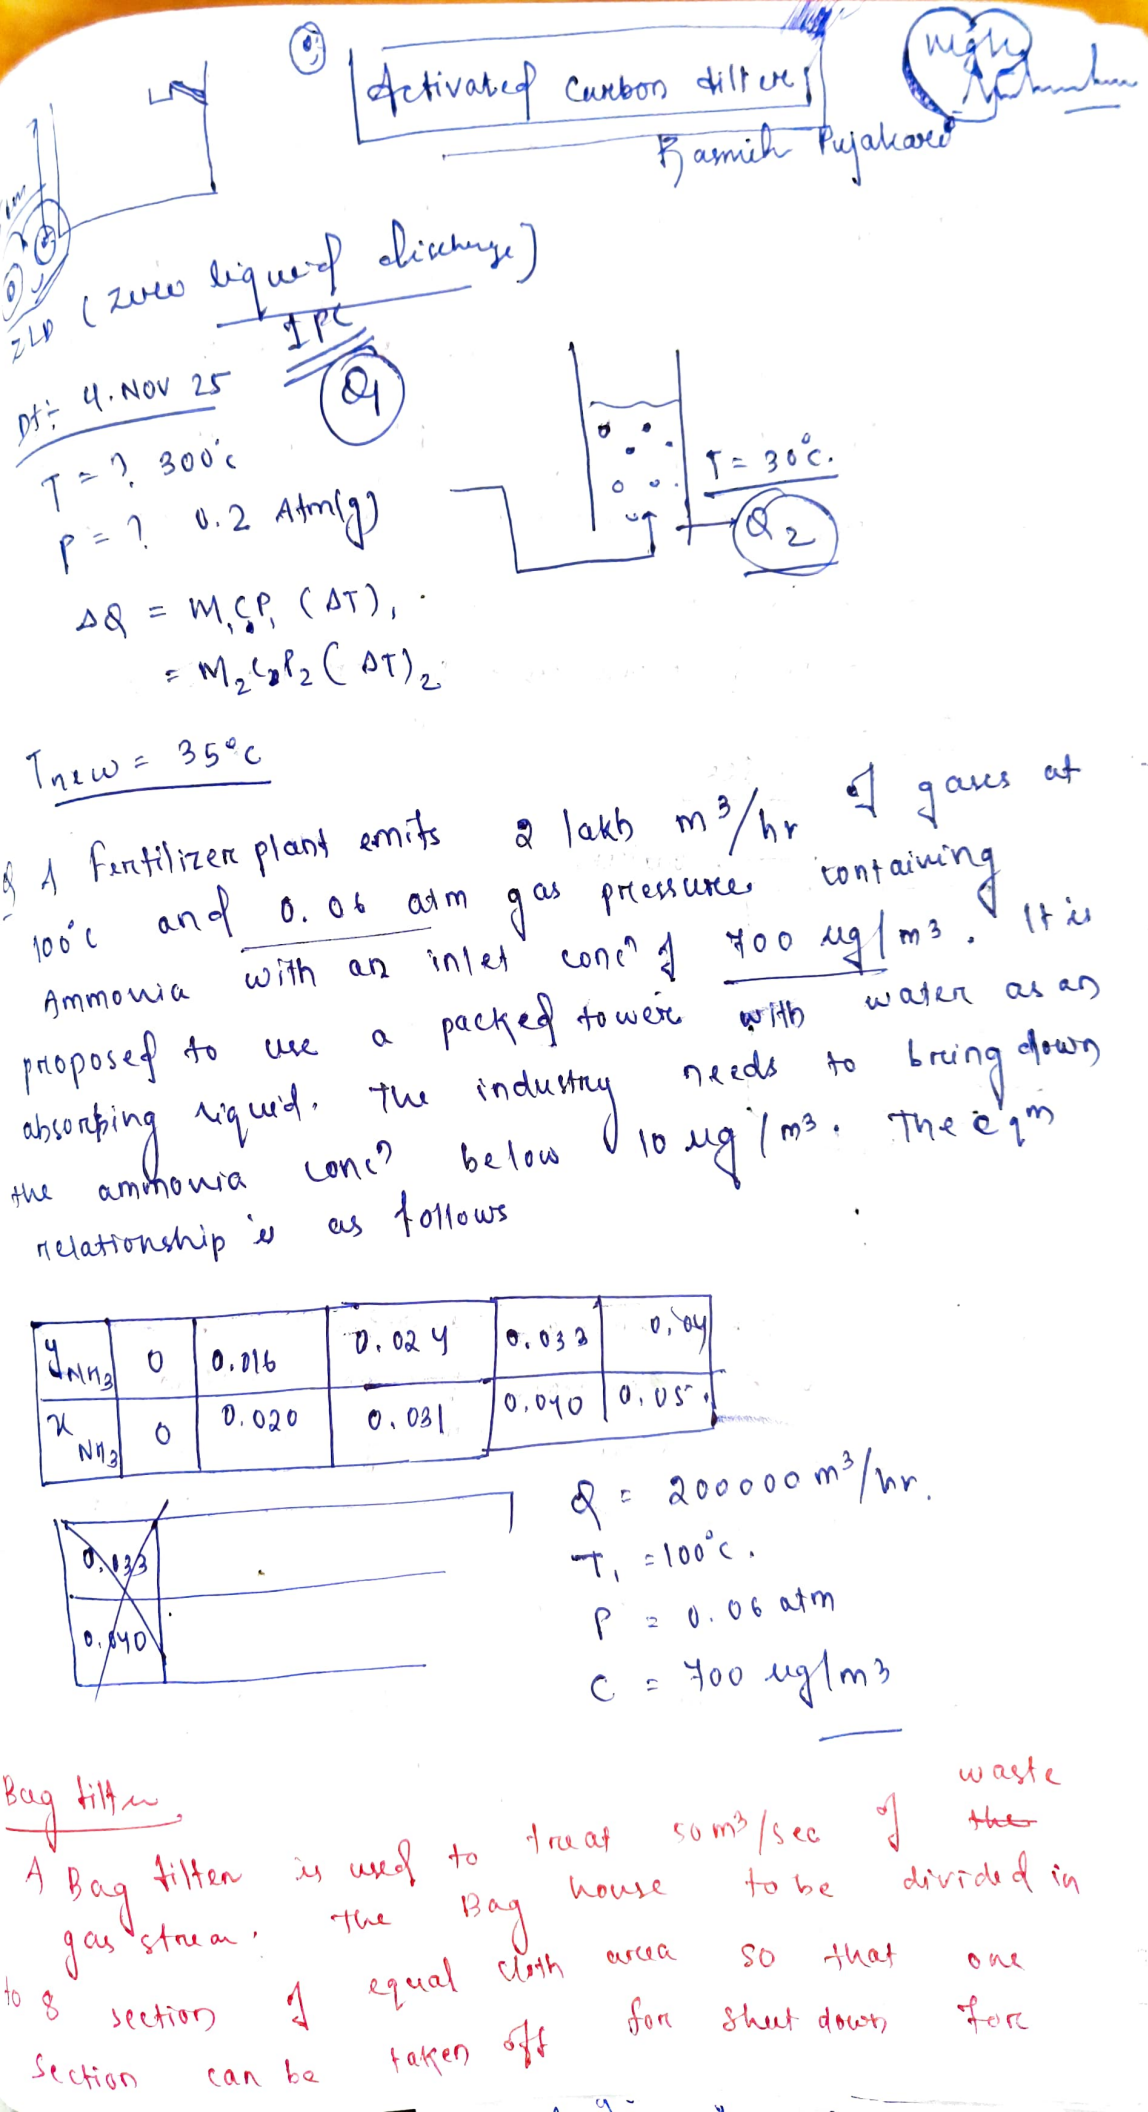 Activated Carbon filters
Pujakari
ZLD (Zero liquid discharge)
IPC
Dt: 4. NOV 25
Q1
T = ? 300°C
P = ? 0.2 Atm(g)
T = 30°C.
Q2
ΔQ = M1CP1 (ΔT)1
= M2CP2 (ΔT)2
Tnew = 35°C
Q A Fertilizer plant emits 2 lakh m3/hr of gases at
100°C and 0.06 atm gas pressure containing
Ammonia with an inlet concn of 700 ug/m3. It is
proposed to use a packed tower with water as an
absorbing liquid. The industry needs to bring down
the ammonia concn below 10 ug/m3. The eqm
relationship is as follows
yNH3 0 0.016 0.024 0.033 0.04
xNH3 0 0.020 0.031 0.040 0.05
0.033
0.040
Q = 200000 m3/hr.
T1 = 100°C.
P = 0.06 atm
C = 700 ug/m3
Bag filter
A Bag filter is used to treat 50 m3/sec of the waste
gas stream. The Bag house to be divided in
to 8 section of equal cloth area so that one
section can be taken off for shut down for